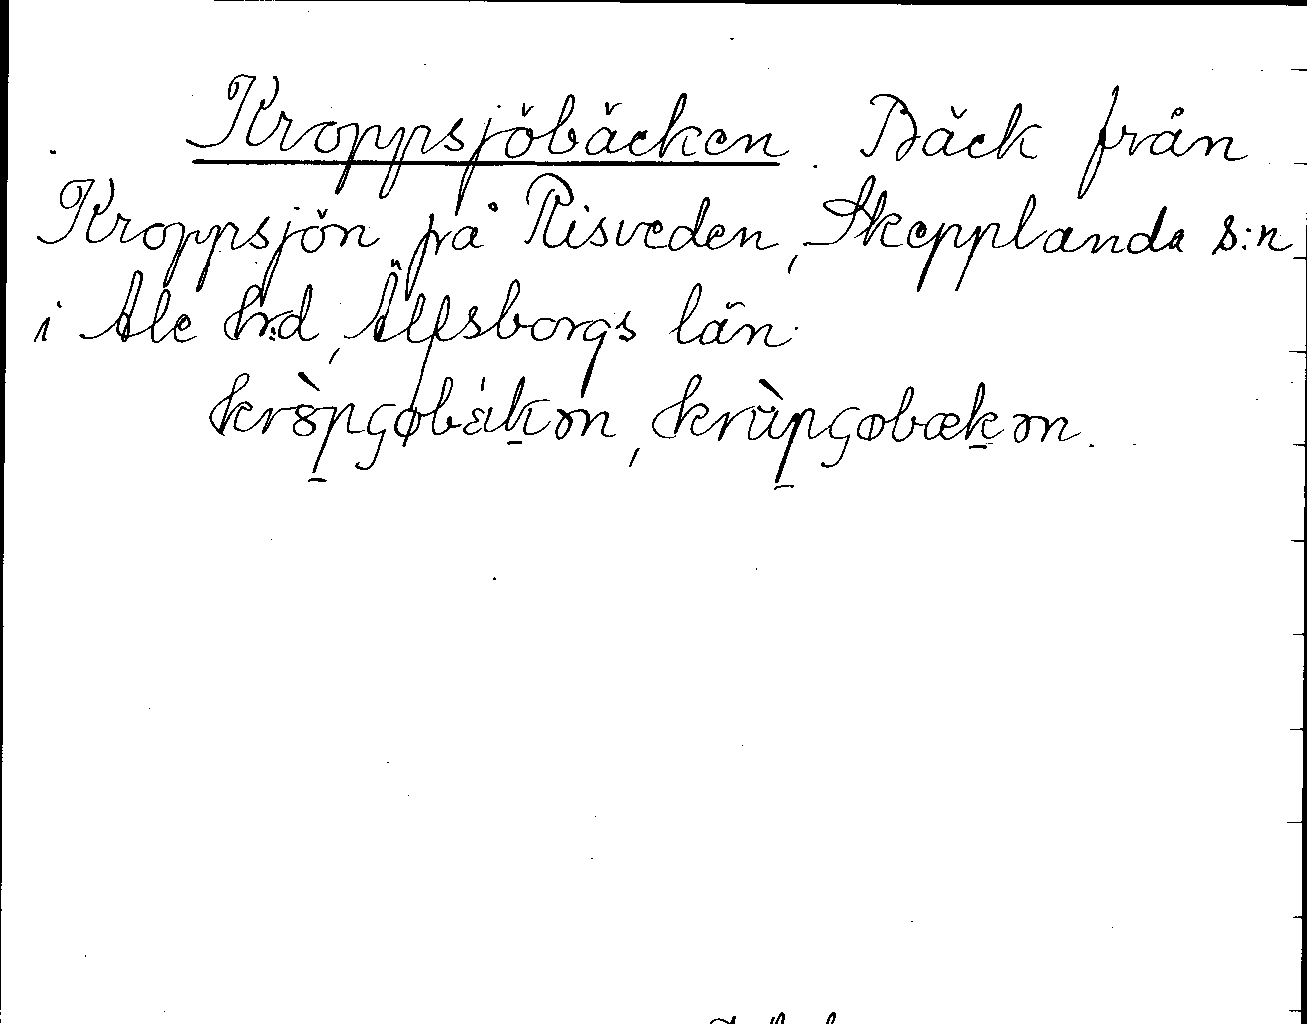 Kroppsjöbäcken. Bäck från
Kroppsjön på Risveden, Skepplanda s:n
i Ale h:d, Älfsborgs län.